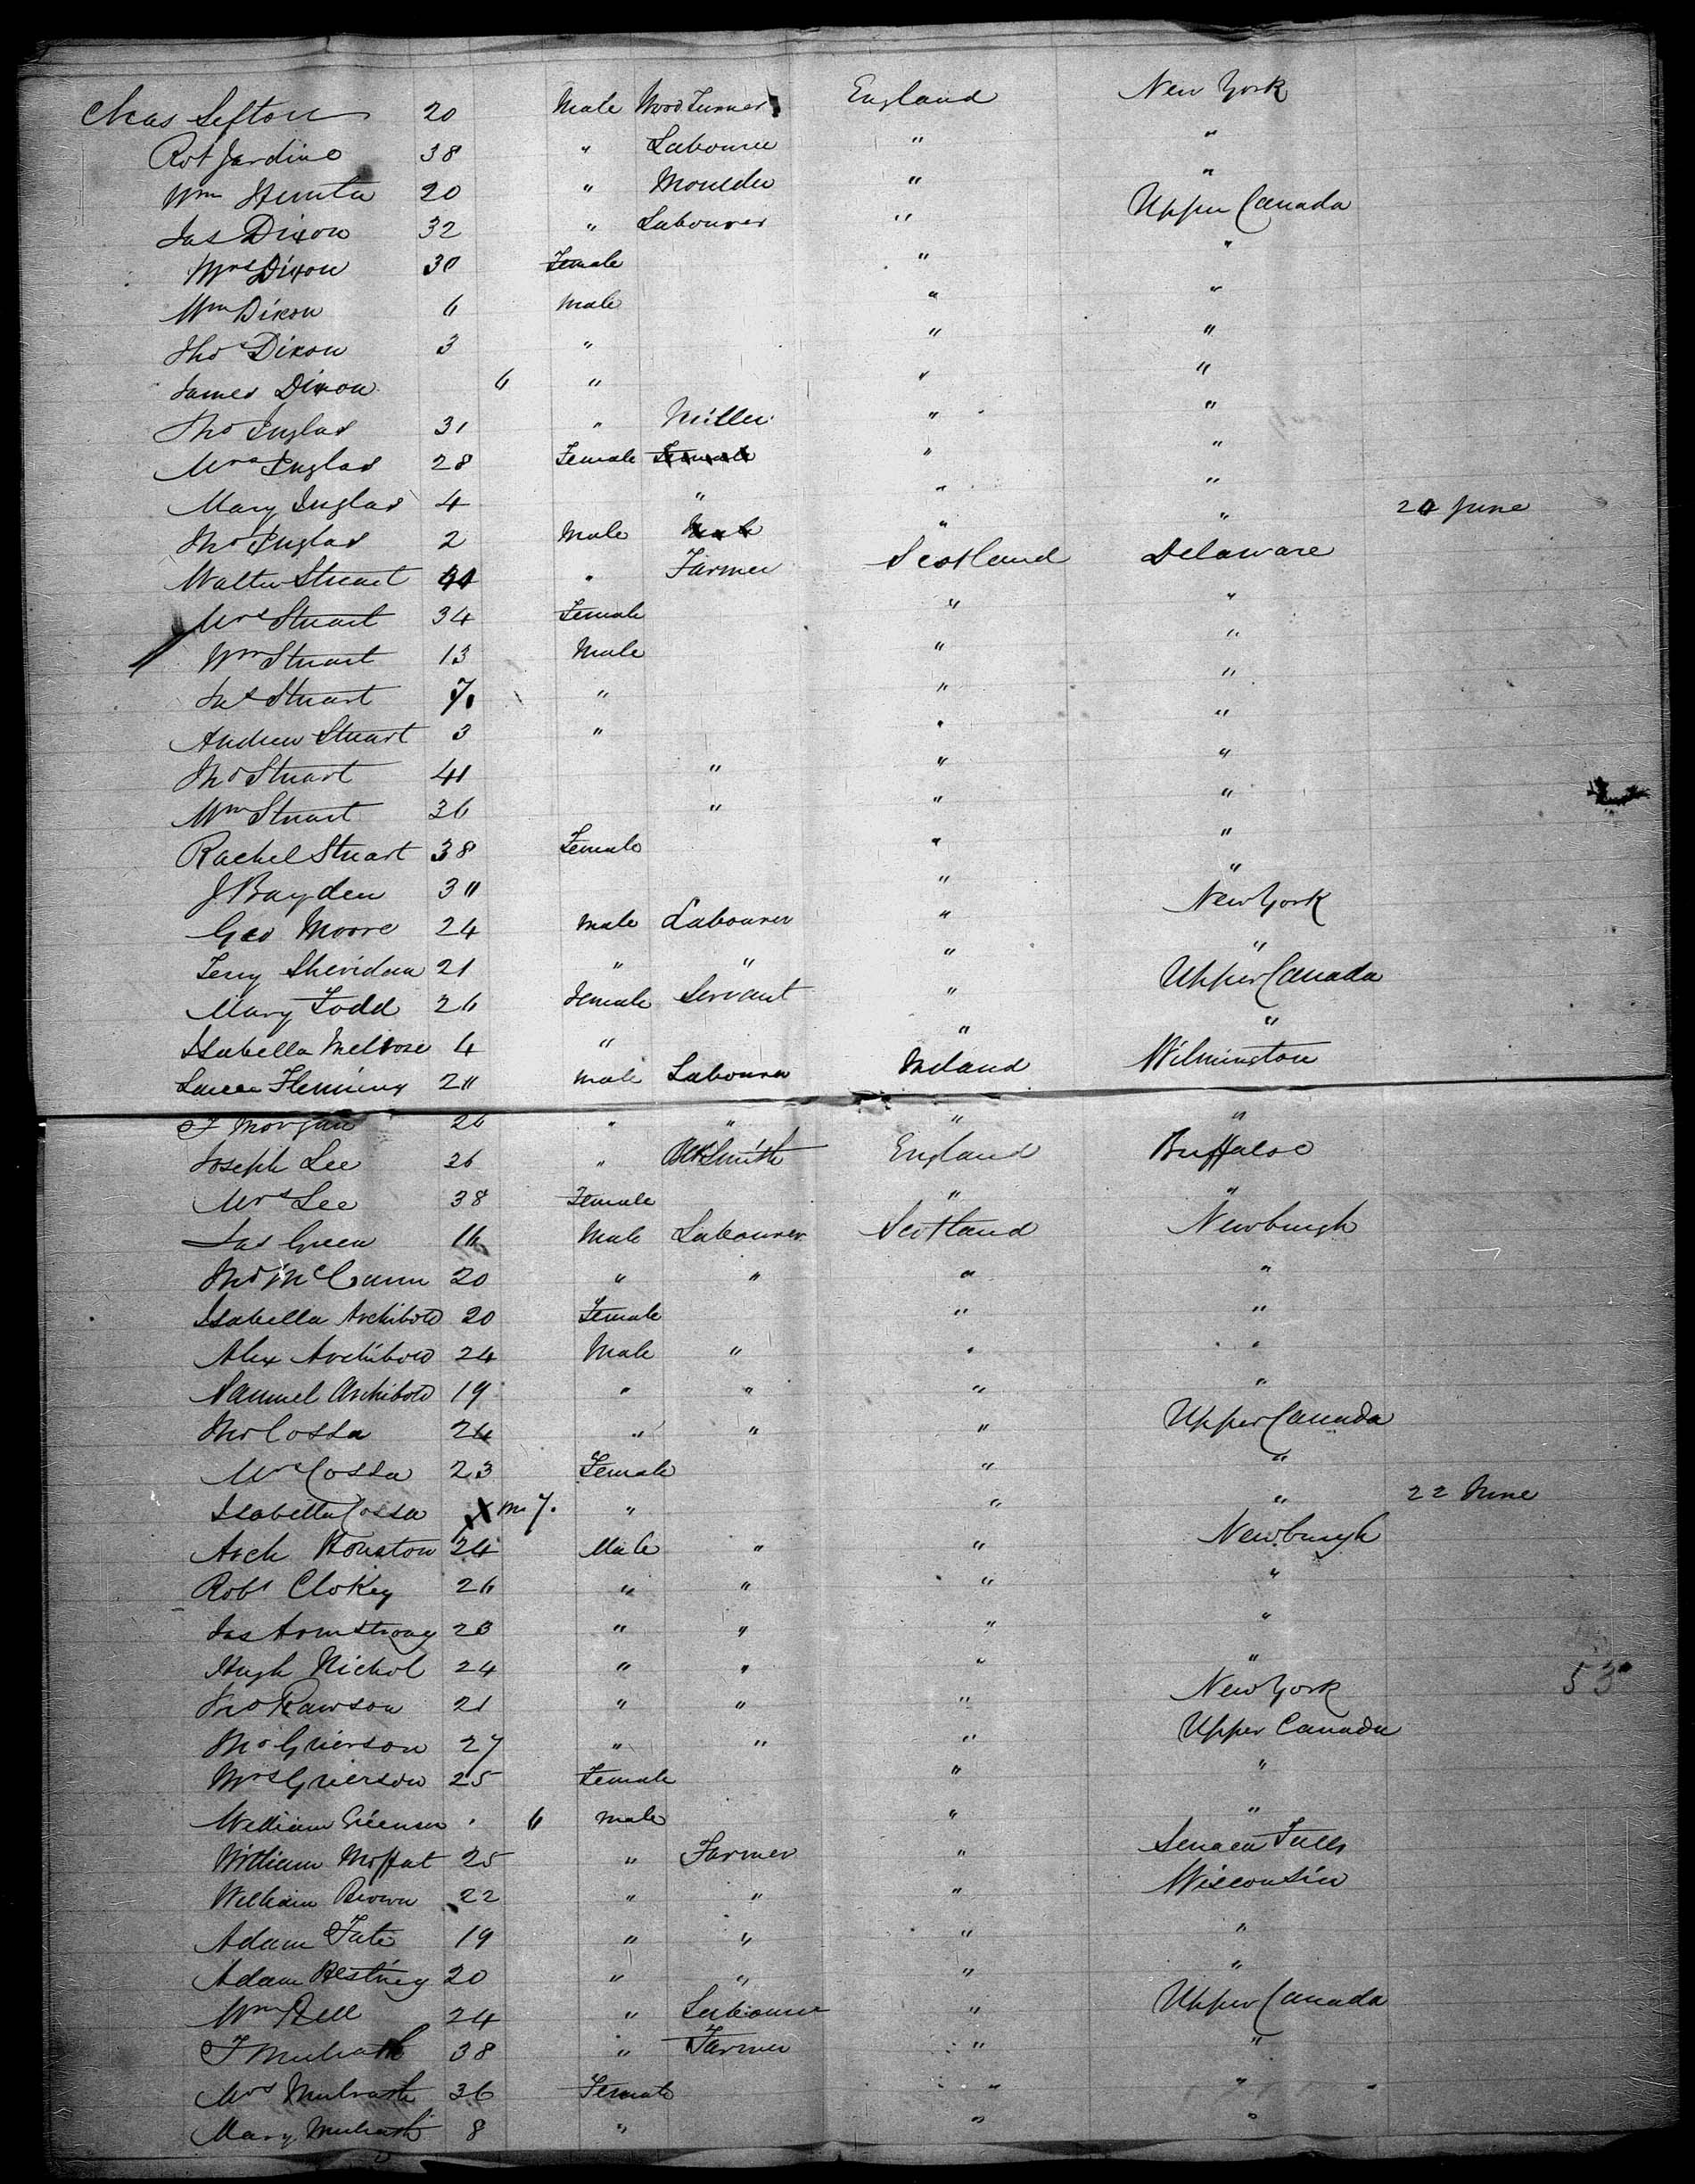 Chas Sefton 20 Male Wood Turner England New York
Rot Jardine 38 " Labourer " "
Wm Hunter 20 " Moulder " "
Jas Dixon 32 " Labourer " Upper Canada
Mrs Dixon 30 Female " "
Wm Dixon 6 Male " "
Thos Dixon 3 " " "
James Dixon 6 " " "
Thos Inglas 31 " Miller " "
Mrs Inglas 28 Female Female " "
Mary Inglas 4 " " "
Thos Inglas 2 Male Male " " 20 June
Walter Stuart Farmer Scotland Delaware
Mrs Stuart 34 Female " "
Wm Stuart 13 Male " "
Jas Stuart 7 " " "
Andrew Stuart 3 " " "
Thos Stuart 41 " " "
Wm Stuart 36 " " "
Rachel Stuart 38 Female " "
J Bayden 30 " "
Geo Moore 24 Male Labourer " New York
Terry Sheridan 21 " " " "
Mary Todd 26 Female Servant " Upper Canada
Isabella Melrose 4 " " "
Fleming 20 Male Labourer Ireland Wilmington
T Morgan 26 " " " "
Joseph Lee 36 " BlkSmith England Buffaloe
Mrs Lee 38 Female " "
Jas Green 16 Male Labourer Scotland Newburgh
Thos McCunn 20 " " " "
Isabella Archibold 20 Female " "
Alex Archibold 24 Male " " "
Samuel Archibold 19 " " " "
Thos Cossa 24 " " " Upper Canada
Mrs Cossa 23 Female " "
Isabella Cossa m 7. " " " 22 June
Arch Houston 24 Male " " Newburgh
Robt Clokey 26 " " " "
Jas Armstrong 23 " " " "
Hugh Nichol 24 " " " " 53
Thos Rawson 21 " " " New York
Thos Grierson 27 " " " Upper Canada
Mrs Grierson 25 Female " "
William Grierson 6 Male " "
William Moffat 25 " Farmer " Senaca Falls
William Brown 22 " " " Wisconsin
Adam Tate 19 " " " "
Adam 20 " " " "
Wm Bell 24 " Labourer " Upper Canada
T Mulrath 38 " Farmer " "
Mrs Mulrath 36 Female " "
Mary Mulrath 8 " " "